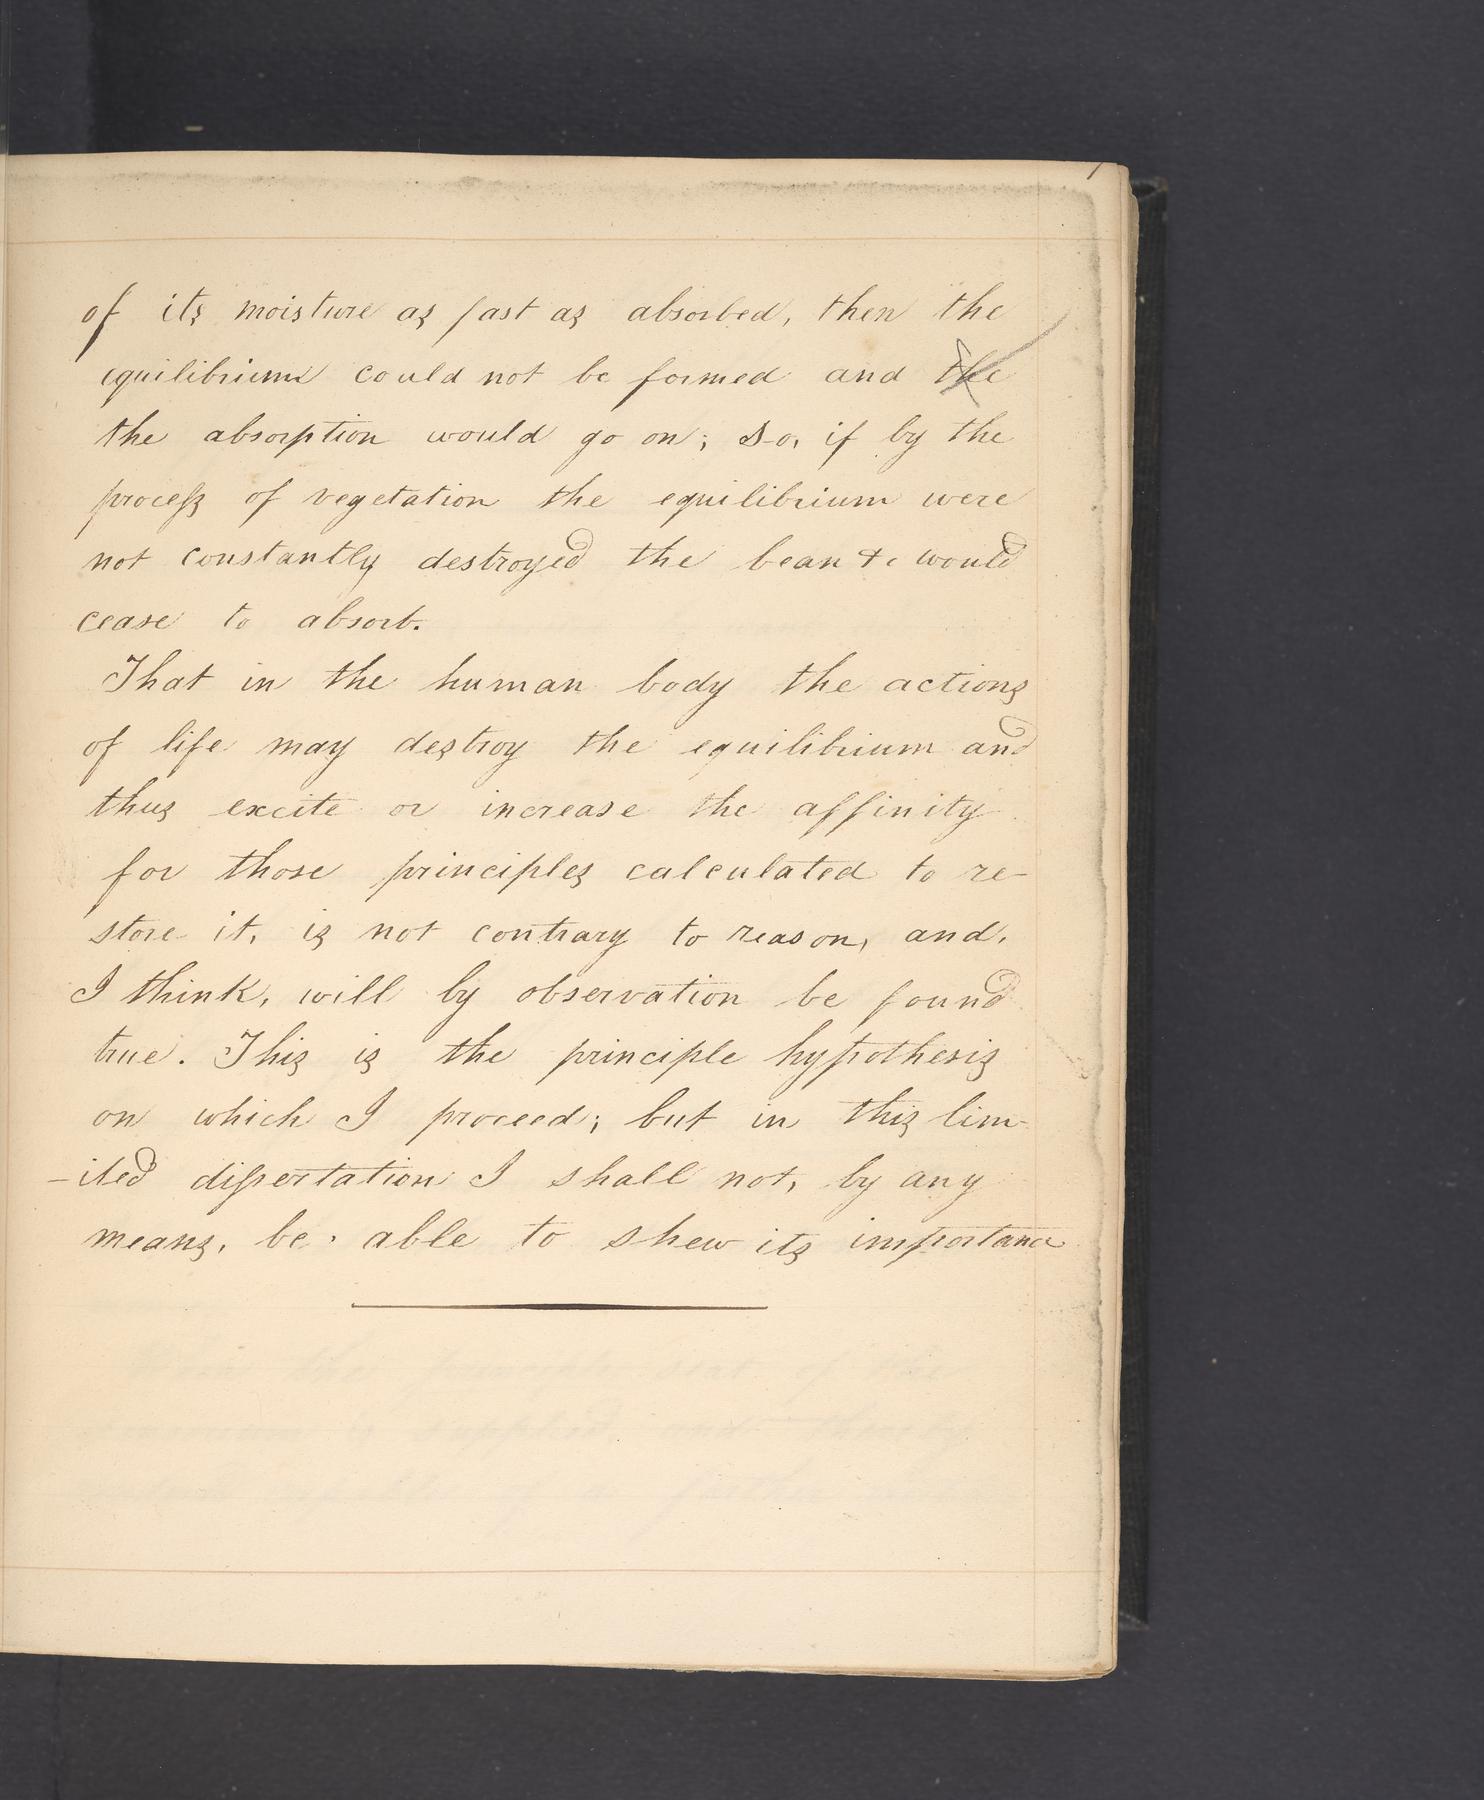 of its moisture as fast as absorbed, then the
equilibrium could not be formed and the
the absorption would go on; So, if by the
process of vegetation the equilibrium were
not constantly destroyed the bean &c would
cease to absorb.
That in the human body the actions
of life may destroy the equilibrium and
thus excite or increase the affinity
for those principles calculated to re-
store it, is not contrary to reason, and,
I think, will by observation be found
true. This is the principle hypothesis
on which I proceed; but in this lim-
-ited dissertation I shall not, by any
means, be able to shew its importance